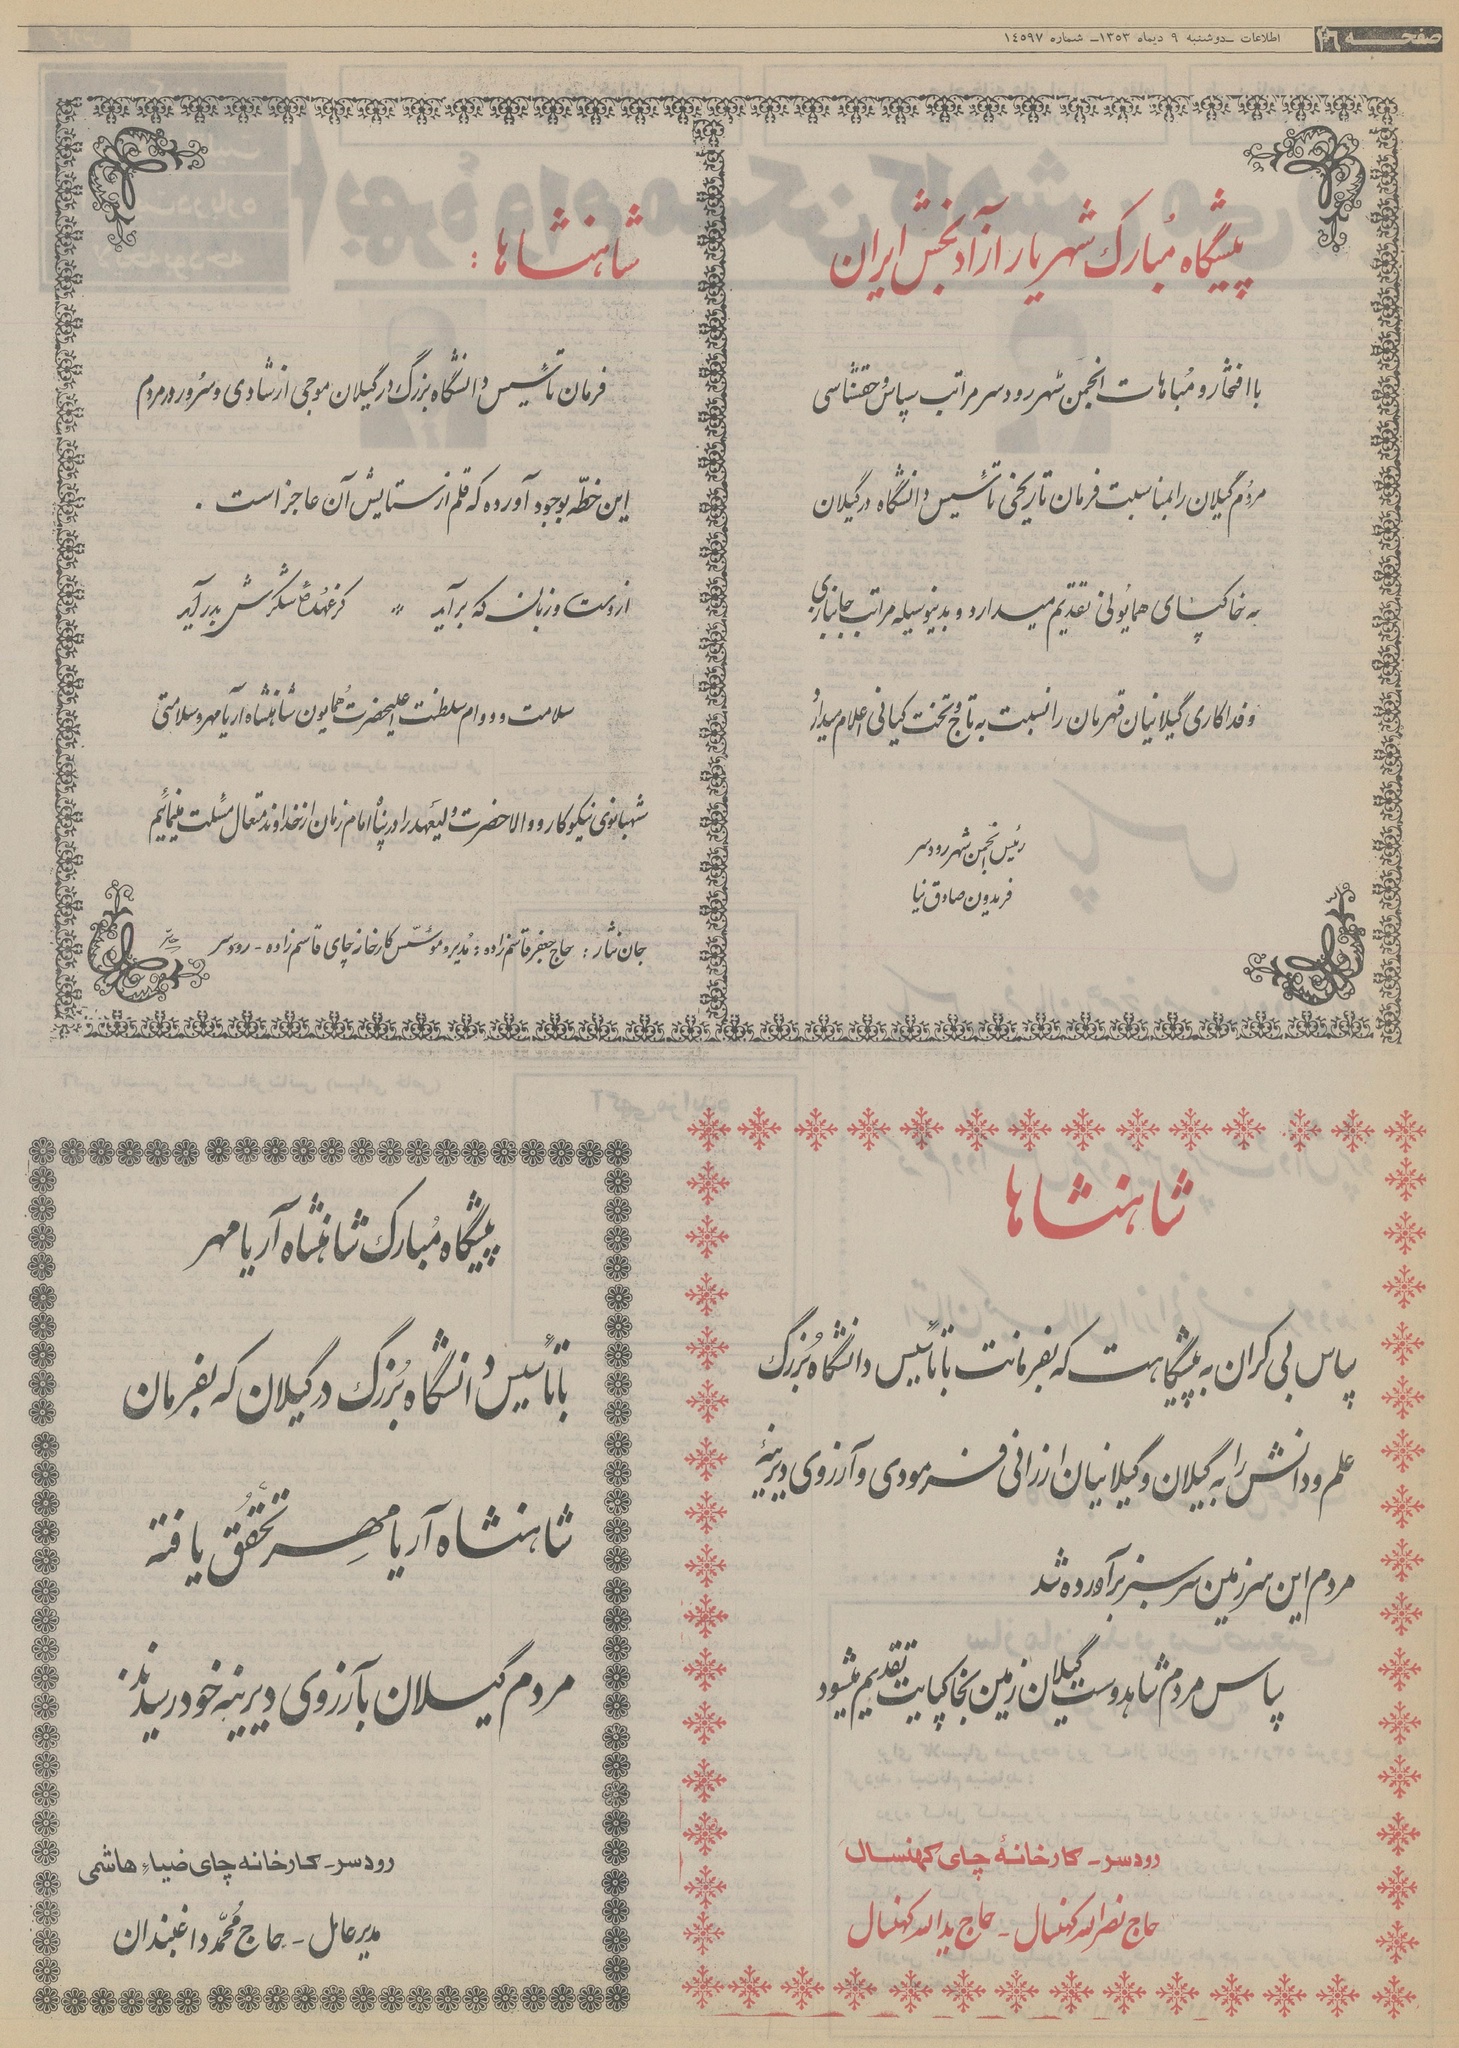 صفحه ۲۶
اطلاعات ـ دوشنبه ۹ دیماه ۱۳۵۳ـ شماره ۱۴۵۹۷
پیشگاه مُبارک شهریار آزاد بخش ایران
با افتخار و مُباهات انجمن شهر رودسر مراتب سپاس و حقشناسی
مردُم گیلان را بمناسبت فرمان تاریخی تأسیس دانشگاه در گیلان
به خاکپای همایونی تقدیم میدارد و بدینوسیله مراتب جانبازی
و فداکاری گیلانیان قهرمان را نسبت به تاج و تخت کیانی اعلام میدارد
رئیس انجمن شهر رودسر
فریدون صادق نیا
شاهنشاها :
فرمان تأسیس دانشگاه بزرگ در گیلان موجی از شادی و سُرور در مردم
این خطّه بوجود آورده که قلم از ستایش آن عاجز است .
از دست و زبان که برآید " کز عهدهٔ شکرش بدر آید
سلامت و دوام سلطنت اعلیحضرت همایون شاهنشاه آریامهر و سلامتی
شهبانوی نیکوکار و والاحضرت ولیعهد را در پناه امام زمان از خداوند متعال مسئلت مینمائیم
جان نثار : حاج جعفر قاسم زاده : مُدیر و مؤسّس کارخانه چای قاسم زاده - رودسر
شاهنشاها
سپاس بی کران به پیشگاهت که بفرمانت با تأسیس دانشگاه بُزرگ
علم و دانش را به گیلان و گیلانیان ارزانی فرمودی و آرزوی دیرینهٔ
مردم این سرزمین سرسبز برآورده شد
سپاس مردم شاهدوست گیلان زمین بخاکپایت تقدیم میشود
رودسر - کارخانهٔ چای کهنسال
حاج نصراله کهنسال - حاج یداله کهنسال
پیشگاه مُبارک شاهنشاه آریامهر
با تأسیس دانشگاه بُزرگ در گیلان که بفرمان
شاهنشاه آریامهر تحقّق یافته
مردم گیلان بآرزوی دیرینه خود رسیدند
رودسر - کارخانه چای ضیاء هاشمی
مدیر عامل - حاج مُحمّد داغبندان